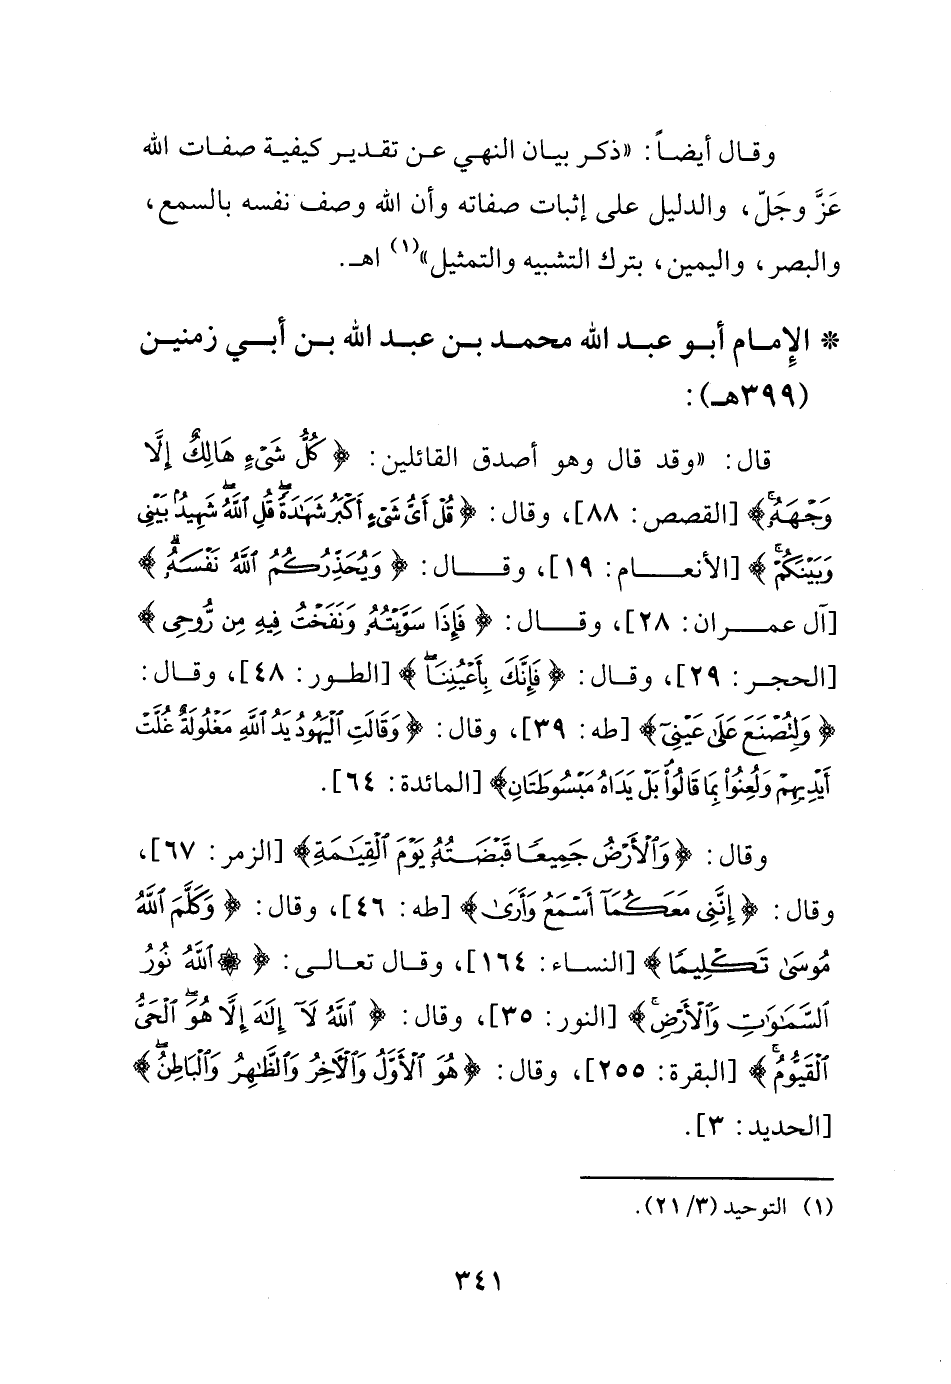 وقال أيضاً: «ذكر بيان النهي عن تقدير كيفية صفات الله
عَزَّ وجَلّ، والدليل على إثبات صفاته وأن الله وصف نفسه بالسمع،
والبصر، واليمين، بترك التشبيه والتمثيل»(١) اهـ.
* الإمام أبو عبد الله محمد بن عبد الله بن أبي زمنين
(٣٩٩هـ):
قال: «وقد قال وهو أصدق القائلين: ﴿كُلُّ شَىْءٍ هَالِكٌ إِلَّا
وَجْهَهُۥۚ﴾ [القصص: ٨٨]، وقال: ﴿قُلْ أَىُّ شَىْءٍ أَكْبَرُ شَهَٰدَةًۖ قُلِ ٱللَّهُۖ شَهِيدٌۢ بَيْنِى
وَبَيْنَكُمْۚ﴾ [الأنعام: ١٩]، وقال: ﴿وَيُحَذِّرُكُمُ ٱللَّهُ نَفْسَهُۥۗ﴾
[آل عمران: ٢٨]، وقال: ﴿فَإِذَا سَوَّيْتُهُۥ وَنَفَخْتُ فِيهِ مِن رُّوحِى﴾
[الحجر: ٢٩]، وقال: ﴿فَإِنَّكَ بِأَعْيُنِنَاۖ﴾ [الطور: ٤٨]، وقال:
﴿وَلِتُصْنَعَ عَلَىٰ عَيْنِىٓ﴾ [طه: ٣٩]، وقال: ﴿وَقَالَتِ ٱلْيَهُودُ يَدُ ٱللَّهِ مَغْلُولَةٌۚ غُلَّتْ
أَيْدِيهِمْ وَلُعِنُوا۟ بِمَا قَالُوا۟ۘ بَلْ يَدَاهُ مَبْسُوطَتَانِ﴾ [المائدة: ٦٤].
وقال: ﴿وَٱلْأَرْضُ جَمِيعًا قَبْضَتُهُۥ يَوْمَ ٱلْقِيَٰمَةِ﴾ [الزمر: ٦٧]،
وقال: ﴿إِنَّنِى مَعَكُمَآ أَسْمَعُ وَأَرَىٰ﴾ [طه: ٤٦]، وقال: ﴿وَكَلَّمَ ٱللَّهُ
مُوسَىٰ تَكْلِيمًا﴾ [النساء: ١٦٤]، وقال تعالى: ﴿۞ ٱللَّهُ نُورُ
ٱلسَّمَٰوَٰتِ وَٱلْأَرْضِۚ﴾ [النور: ٣٥]، وقال: ﴿ٱللَّهُ لَآ إِلَٰهَ إِلَّا هُوَۖ ٱلْحَىُّ
ٱلْقَيُّومُۚ﴾ [البقرة: ٢٥٥]، وقال: ﴿هُوَ ٱلْأَوَّلُ وَٱلْءَاخِرُ وَٱلظَّٰهِرُ وَٱلْبَاطِنُۖ﴾
[الحديد: ٣].
(١) التوحيد (٢١/٣).
٣٤١